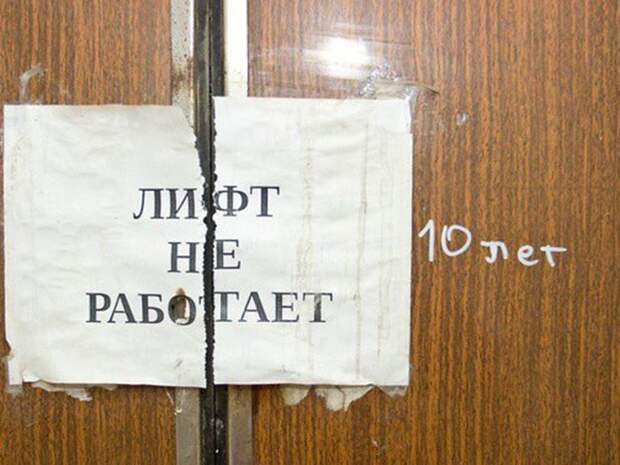 ЛИФТ
НЕ
РАБОТАЕТ
10 лет